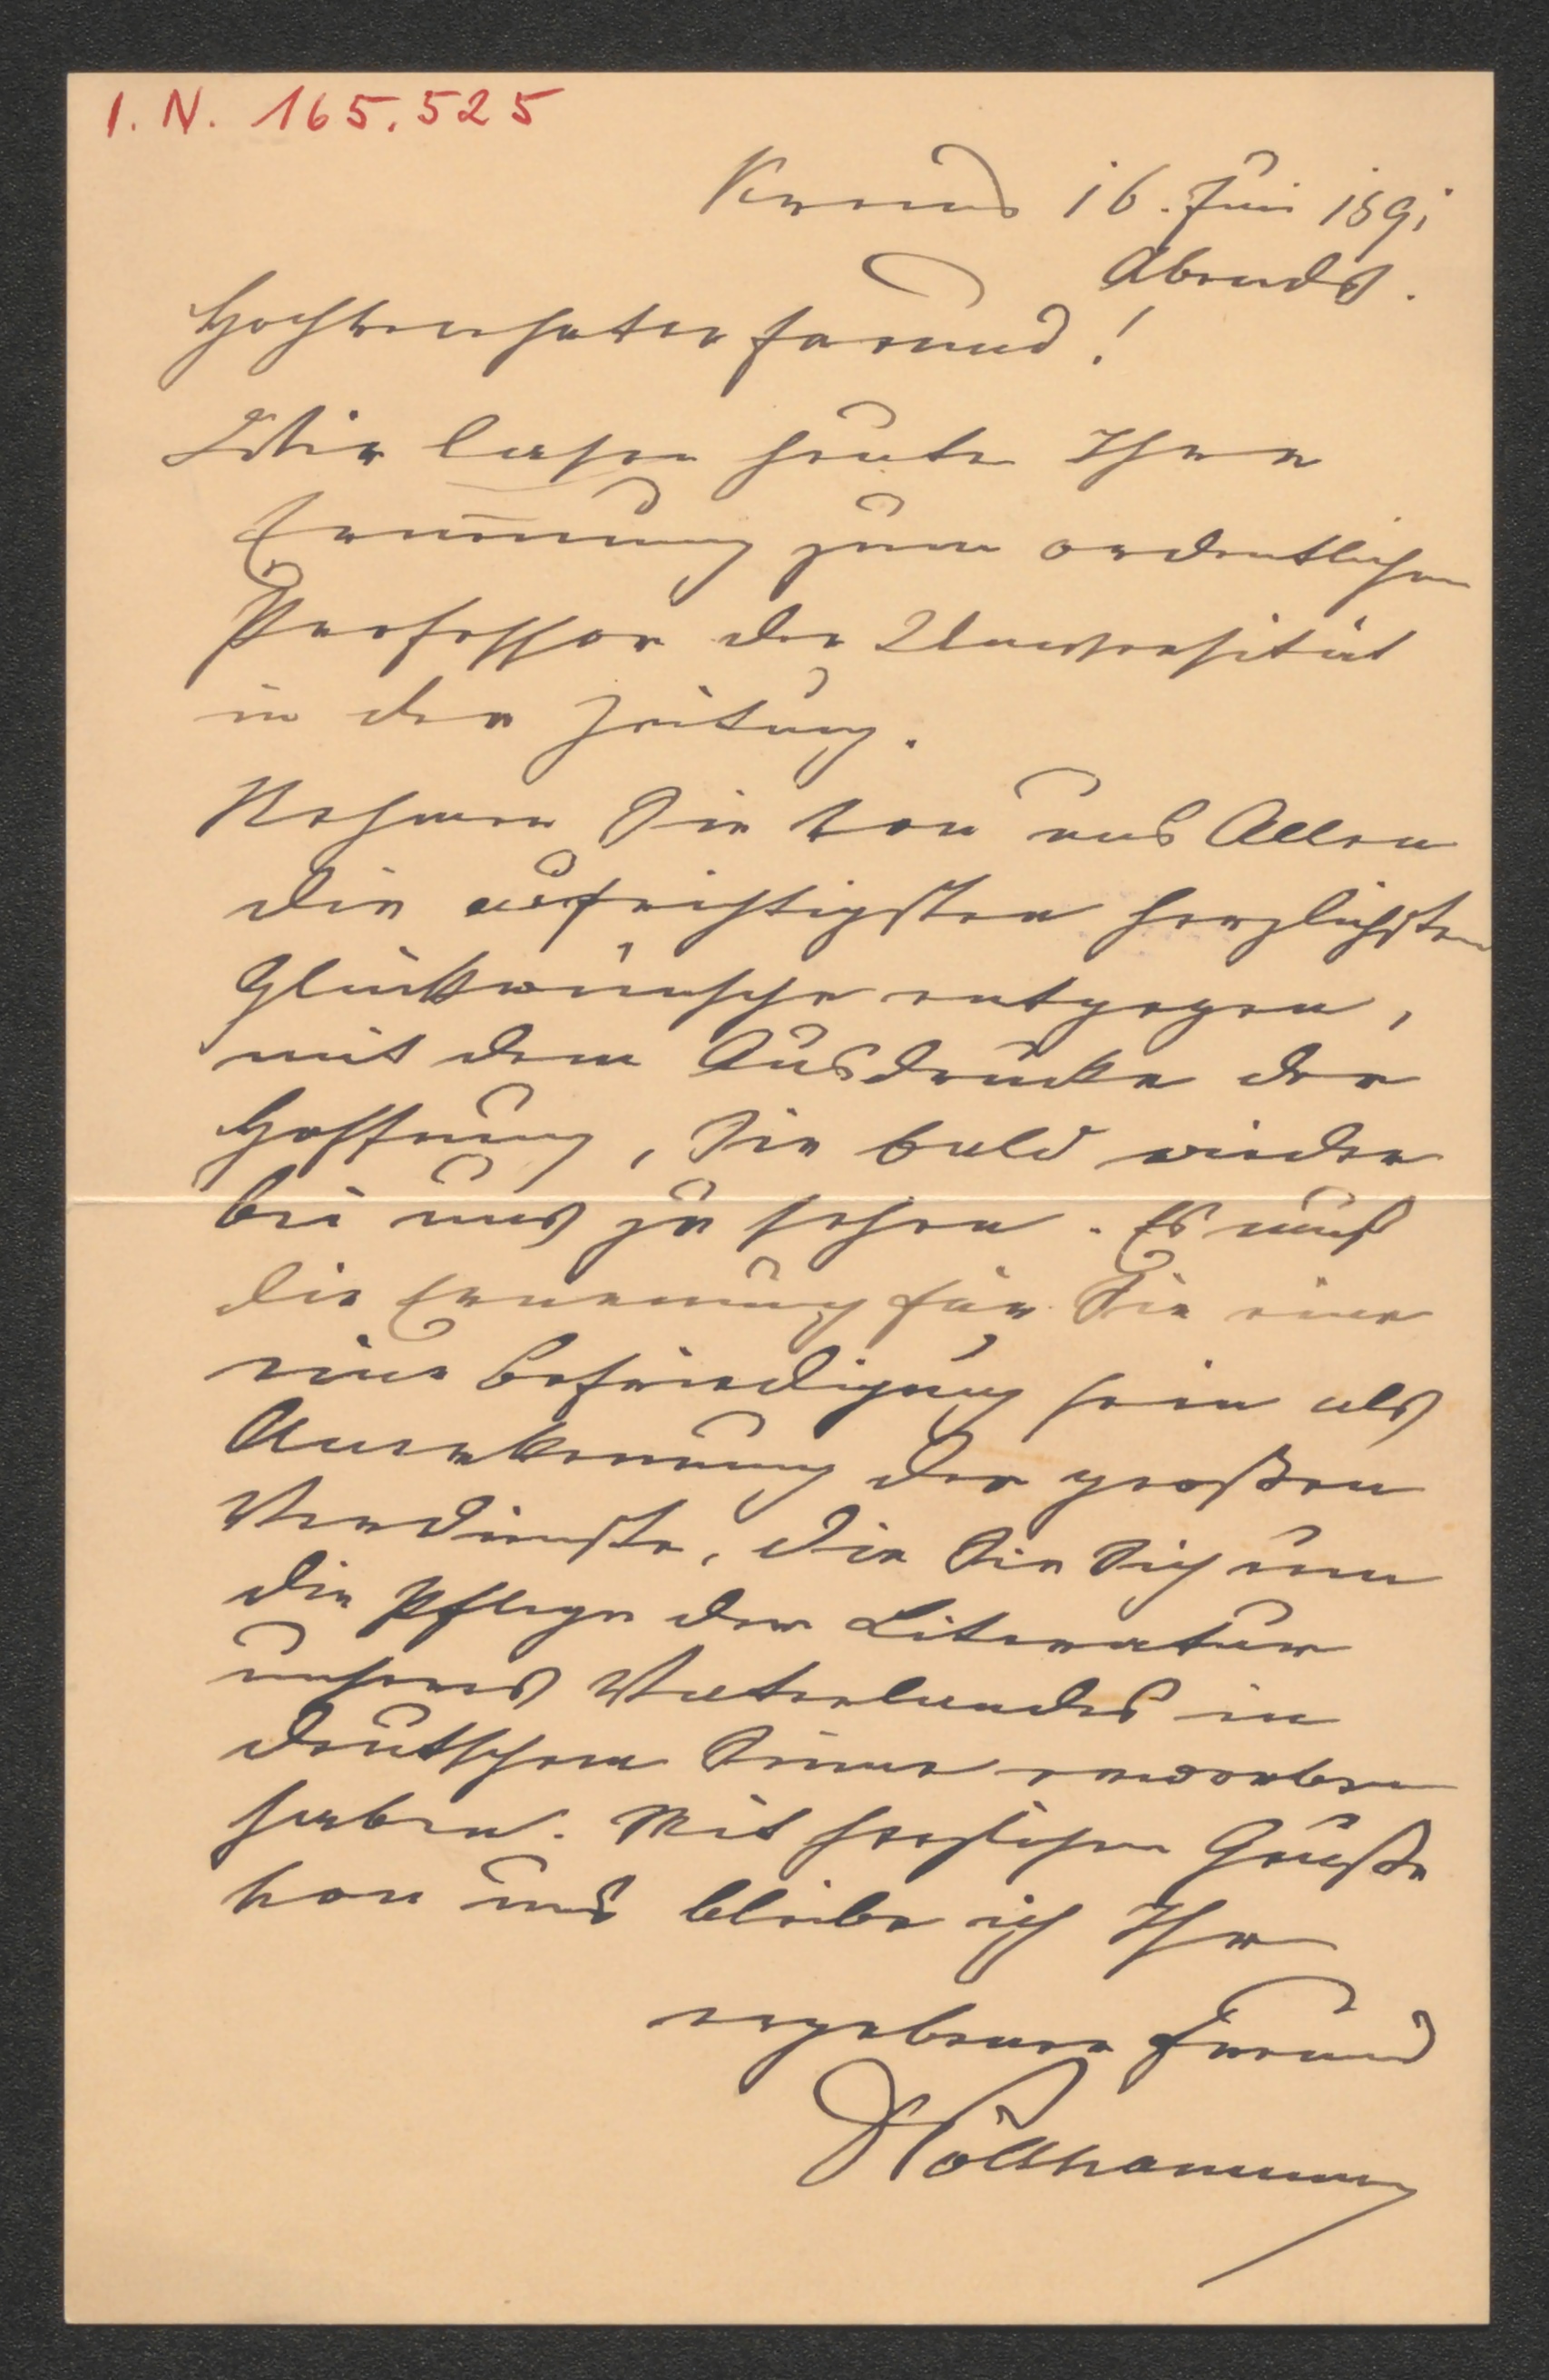 I. N. 165.525
Krems 16. Juni 1891
Abends.
Hochverehrter Freund!
Wir lasen heute Ihre
Ernennung zum ordentlichen
Professor der Universität
in der Zeitung.
Nehmen Sie von uns Allen
die aufrichtigsten herzlichsten
Glückwünsche entgegen,
mit dem Ausdrucke der
Hoffnung, Sie bald wieder
bei uns zu sehen. Es muß
die Ernennung für Sie eine
eine Befriedigung sein als
Anerkennung der großen
Verdienste, die Sie Sich um
die Pflege der Literatur
unseres Vaterlandes in
deutschem Sinne erworben
haben. Mit herzlichem Gruße
von uns bleibe ich Ihr
ergebener Freund